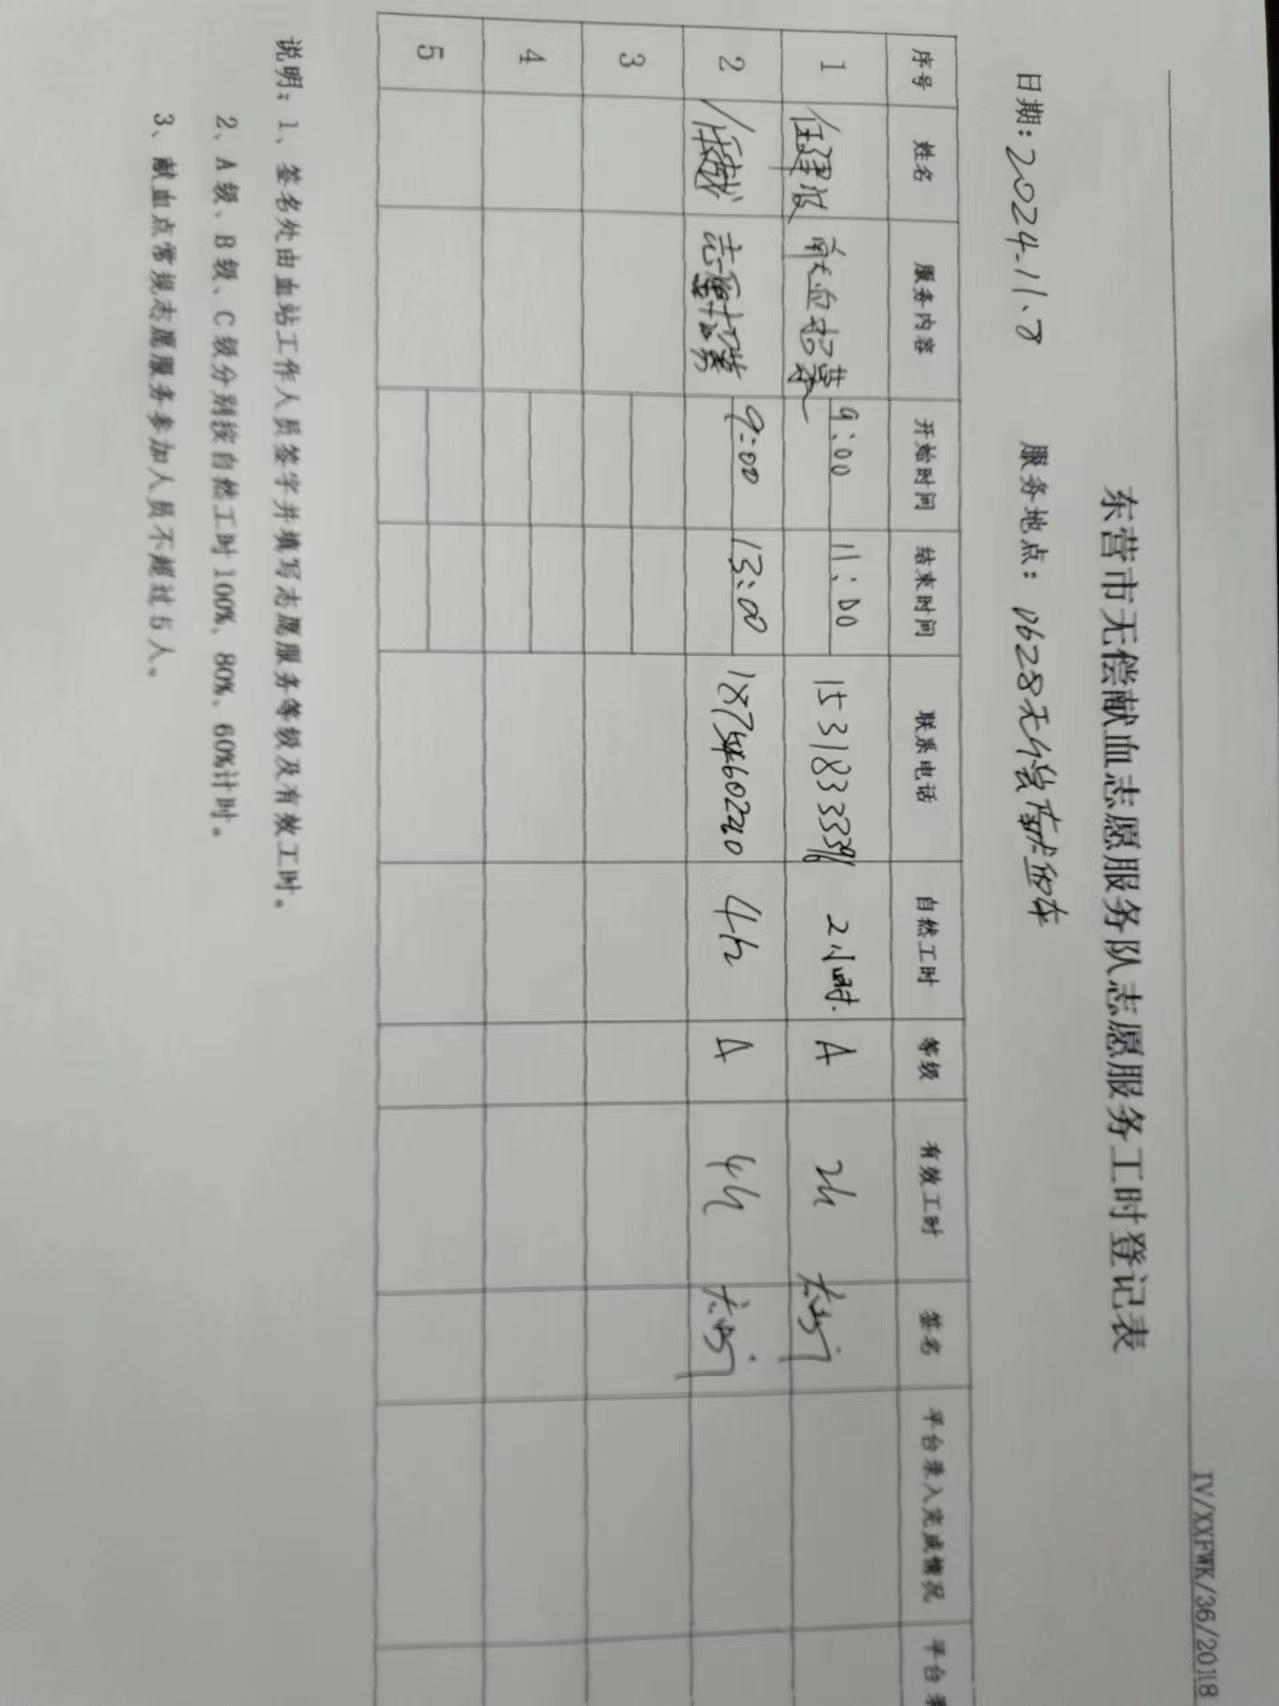 IV/XXFWK/36/2018
东营市无偿献血志愿服务队志愿服务工时登记表
日期：2024.11.8 服务地点：0628无偿献血车
序号 姓名 服务内容 开始时间 结束时间 联系电话 自然工时 等级 有效工时 签名 平台录入完成情况 平台录
1 任建波 献血招募 9:00 11:00 2小时 A 2h
2 志愿招募 9:00 13:00 18754660240 4h A 4h
3
4
5
说明：1、签名处由血站工作人员签字并填写志愿服务等级及有效工时。
2、A级、B级、C级分别按自然工时100%、80%、60%计时。
3、献血点常规志愿服务参加人员不超过5人。